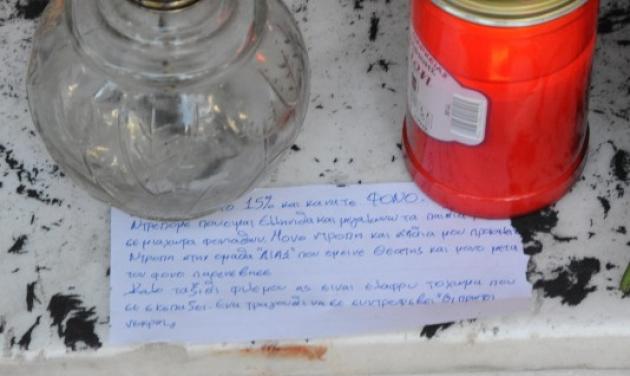 το 15% και κανατε ΦΟΝΟ.
Ντρεπομε που ειμαι Ελληνιδα και μεγαλωνω τα παιδια
σε μια χωρα φονιαδων. Μονο ντροπη και αηδια μου προκαλει
Ντροπη στην ομαδα "ΔΙΑΣ" που εμεινε Θεατης και μονο μετα
τον φονο παρενεβηκε
Καλο ταξιδι φιλε μου ας ειναι ελαφρυ το χωμα που
σε σκεπαζει. Ενα τραγουδι να σε συντροφευει "Οι πρωτοι
νεκροι,,